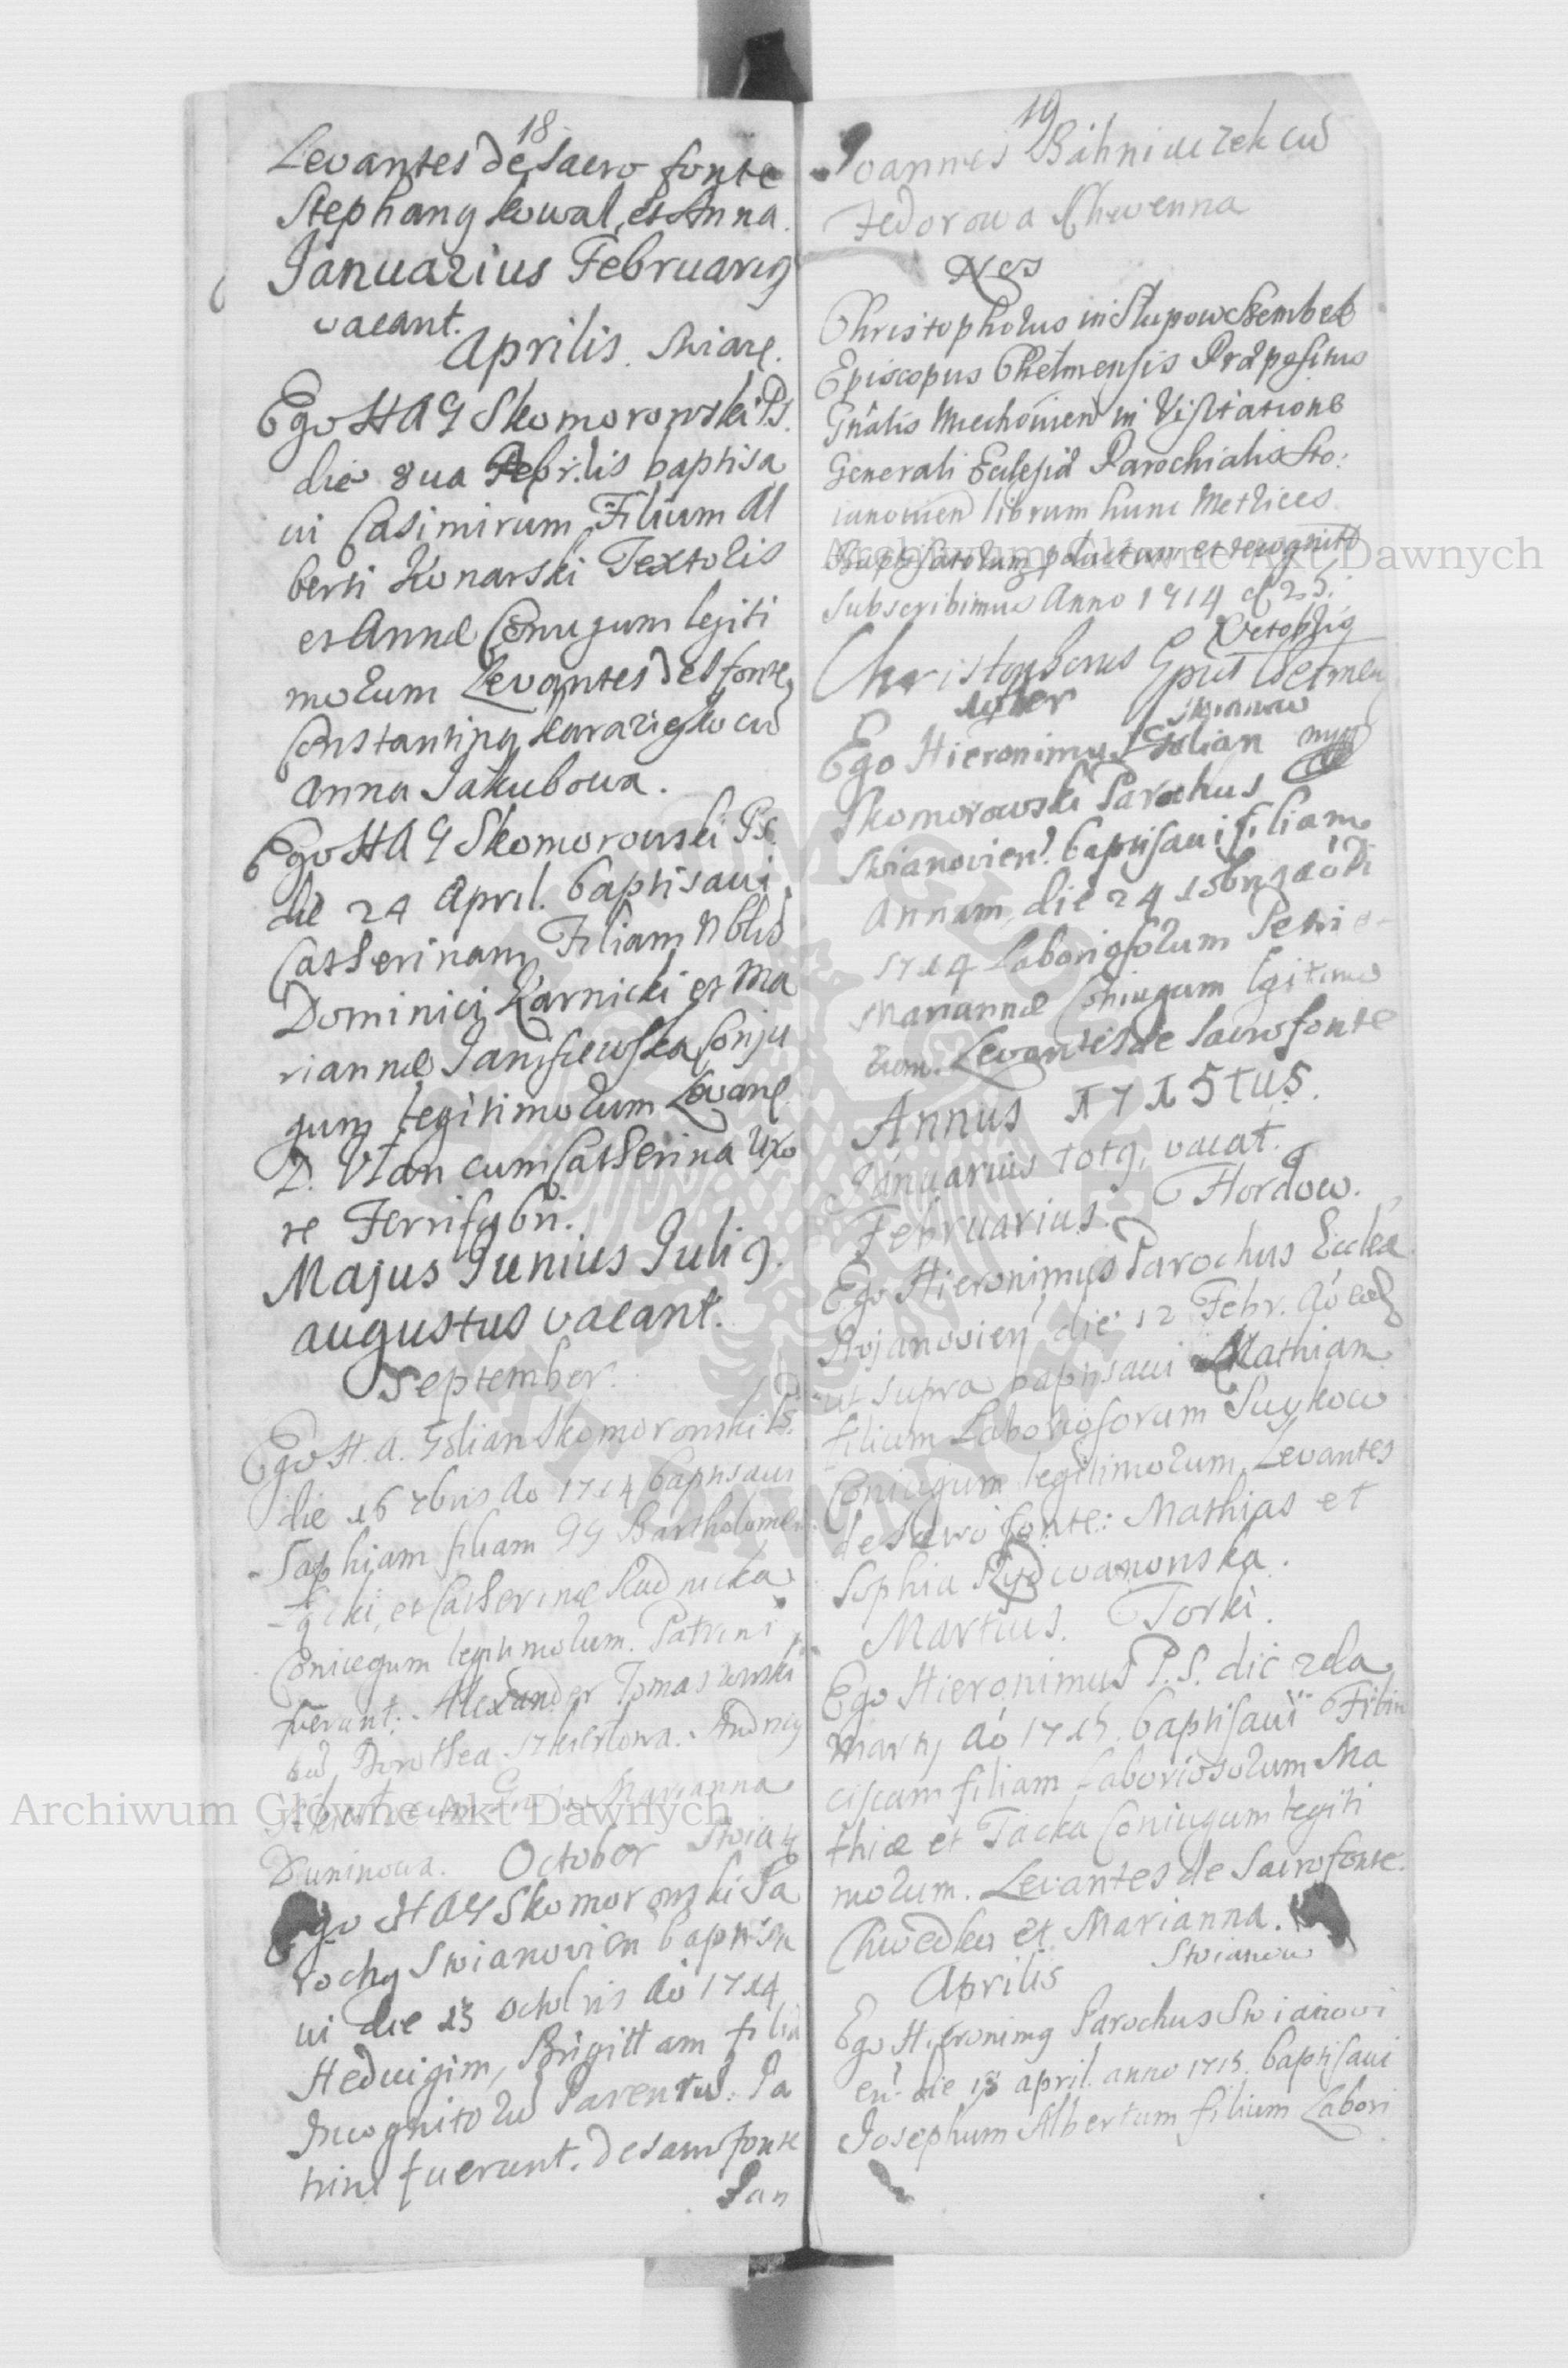 18
Levantes de Sacro fonte
Stephang Kowal, et Anna.
Januarius Februarig
vacant.
Aprilis.
Ego HAG Skomorowski Ps.
die 8va Aprilis baptisa
vi Casimirum Filium Al
berti Konarski Textoris
et Annæ Coniugum legiti
morum Levantes de S fonte
Constanting cu
Anna Jakubowa.
Ego HAG Skomorowski Ps.
die 24 April. baptisavi
Catherinam Filiam Nblis
Dominici Karnicki et Ma
riannæ Janiszewska Conju
gum legitimorum Levane
D. Vlan cum Catherina Uxo
re Ferrifabri.
Majus Junius Julig.
augustus vacant.
September.
Ego H. A. Golian Skomorowski Ps.
die 16 7bris Ao 1714 baptisavi
Sophiam filiam GG Bartholomei
et Catherinæ Rudnicka
Coniugum legitimorum. Patrini
fuerant: Alexander Tomaszewski
cu Dorothea
Marianna
Duninowa. October
Ego HAG Skomorowski Pa
rochg Stoianovien baptisa
vi die 13 octobris Ao 1714
Hedvigim, Brigittam filia
Incognitoru Parentu. Pa
trini fuerunt. de sacro fonte
Jan
19
Joannes Bahniuczek cu
Fedorowa Chwenna
Nos
Christophorus in Słupow Szembek
Episcopus Chelmensis Præpositus
Gnalis Miechovien in Visitatione
Generali Ecclesiæ Parochialis Sto:
ianovien librum hunc Metrices
Baptisatorum et recognitu
subscribimus Anno 1714 d 25.
Octobrig
Christophorus Epus Chelmen
October Stoianow mpp
Ego Hieronimus Golian
Skomorowski Parochus
Stoianovien. baptisavi filiam
Annam, die 24
1714 Laboriosorum Petri et
Mariannæ Coniugum legitimo
rum. Levantes de Sacro fonte
Annus 1715tus.
Januarius totg. vacat.
Februarius. Hordow.
Ego Hieronimus Parochus Eccleæ
Stojanovien die 12 Febr. Ao eod
ut supra baptisavi Mathiam
filium Laboriosorum
Coniugum legitimorum, Levantes
de sacro fonte: Mathias et
Sophia Rydwanowska.
Martius. Torki.
Ego Hieronimus P.S. die 2da
martij Ao 1715. baptisavi Fran
ciscam filiam Laboriosorum Ma
thiæ et Jacka Coniugum legiti
morum. Levantes de Sacro fonte.
Chwedko et Marianna.
Aprilis Stoianow
Ego Hieronimg Parochus Stoianovi
en. die april. anno 1715. baptisavi
Josephum Albertum filium Labori
Archiwum Główne Akt Dawnych
Archiwum Główne Akt Dawnych